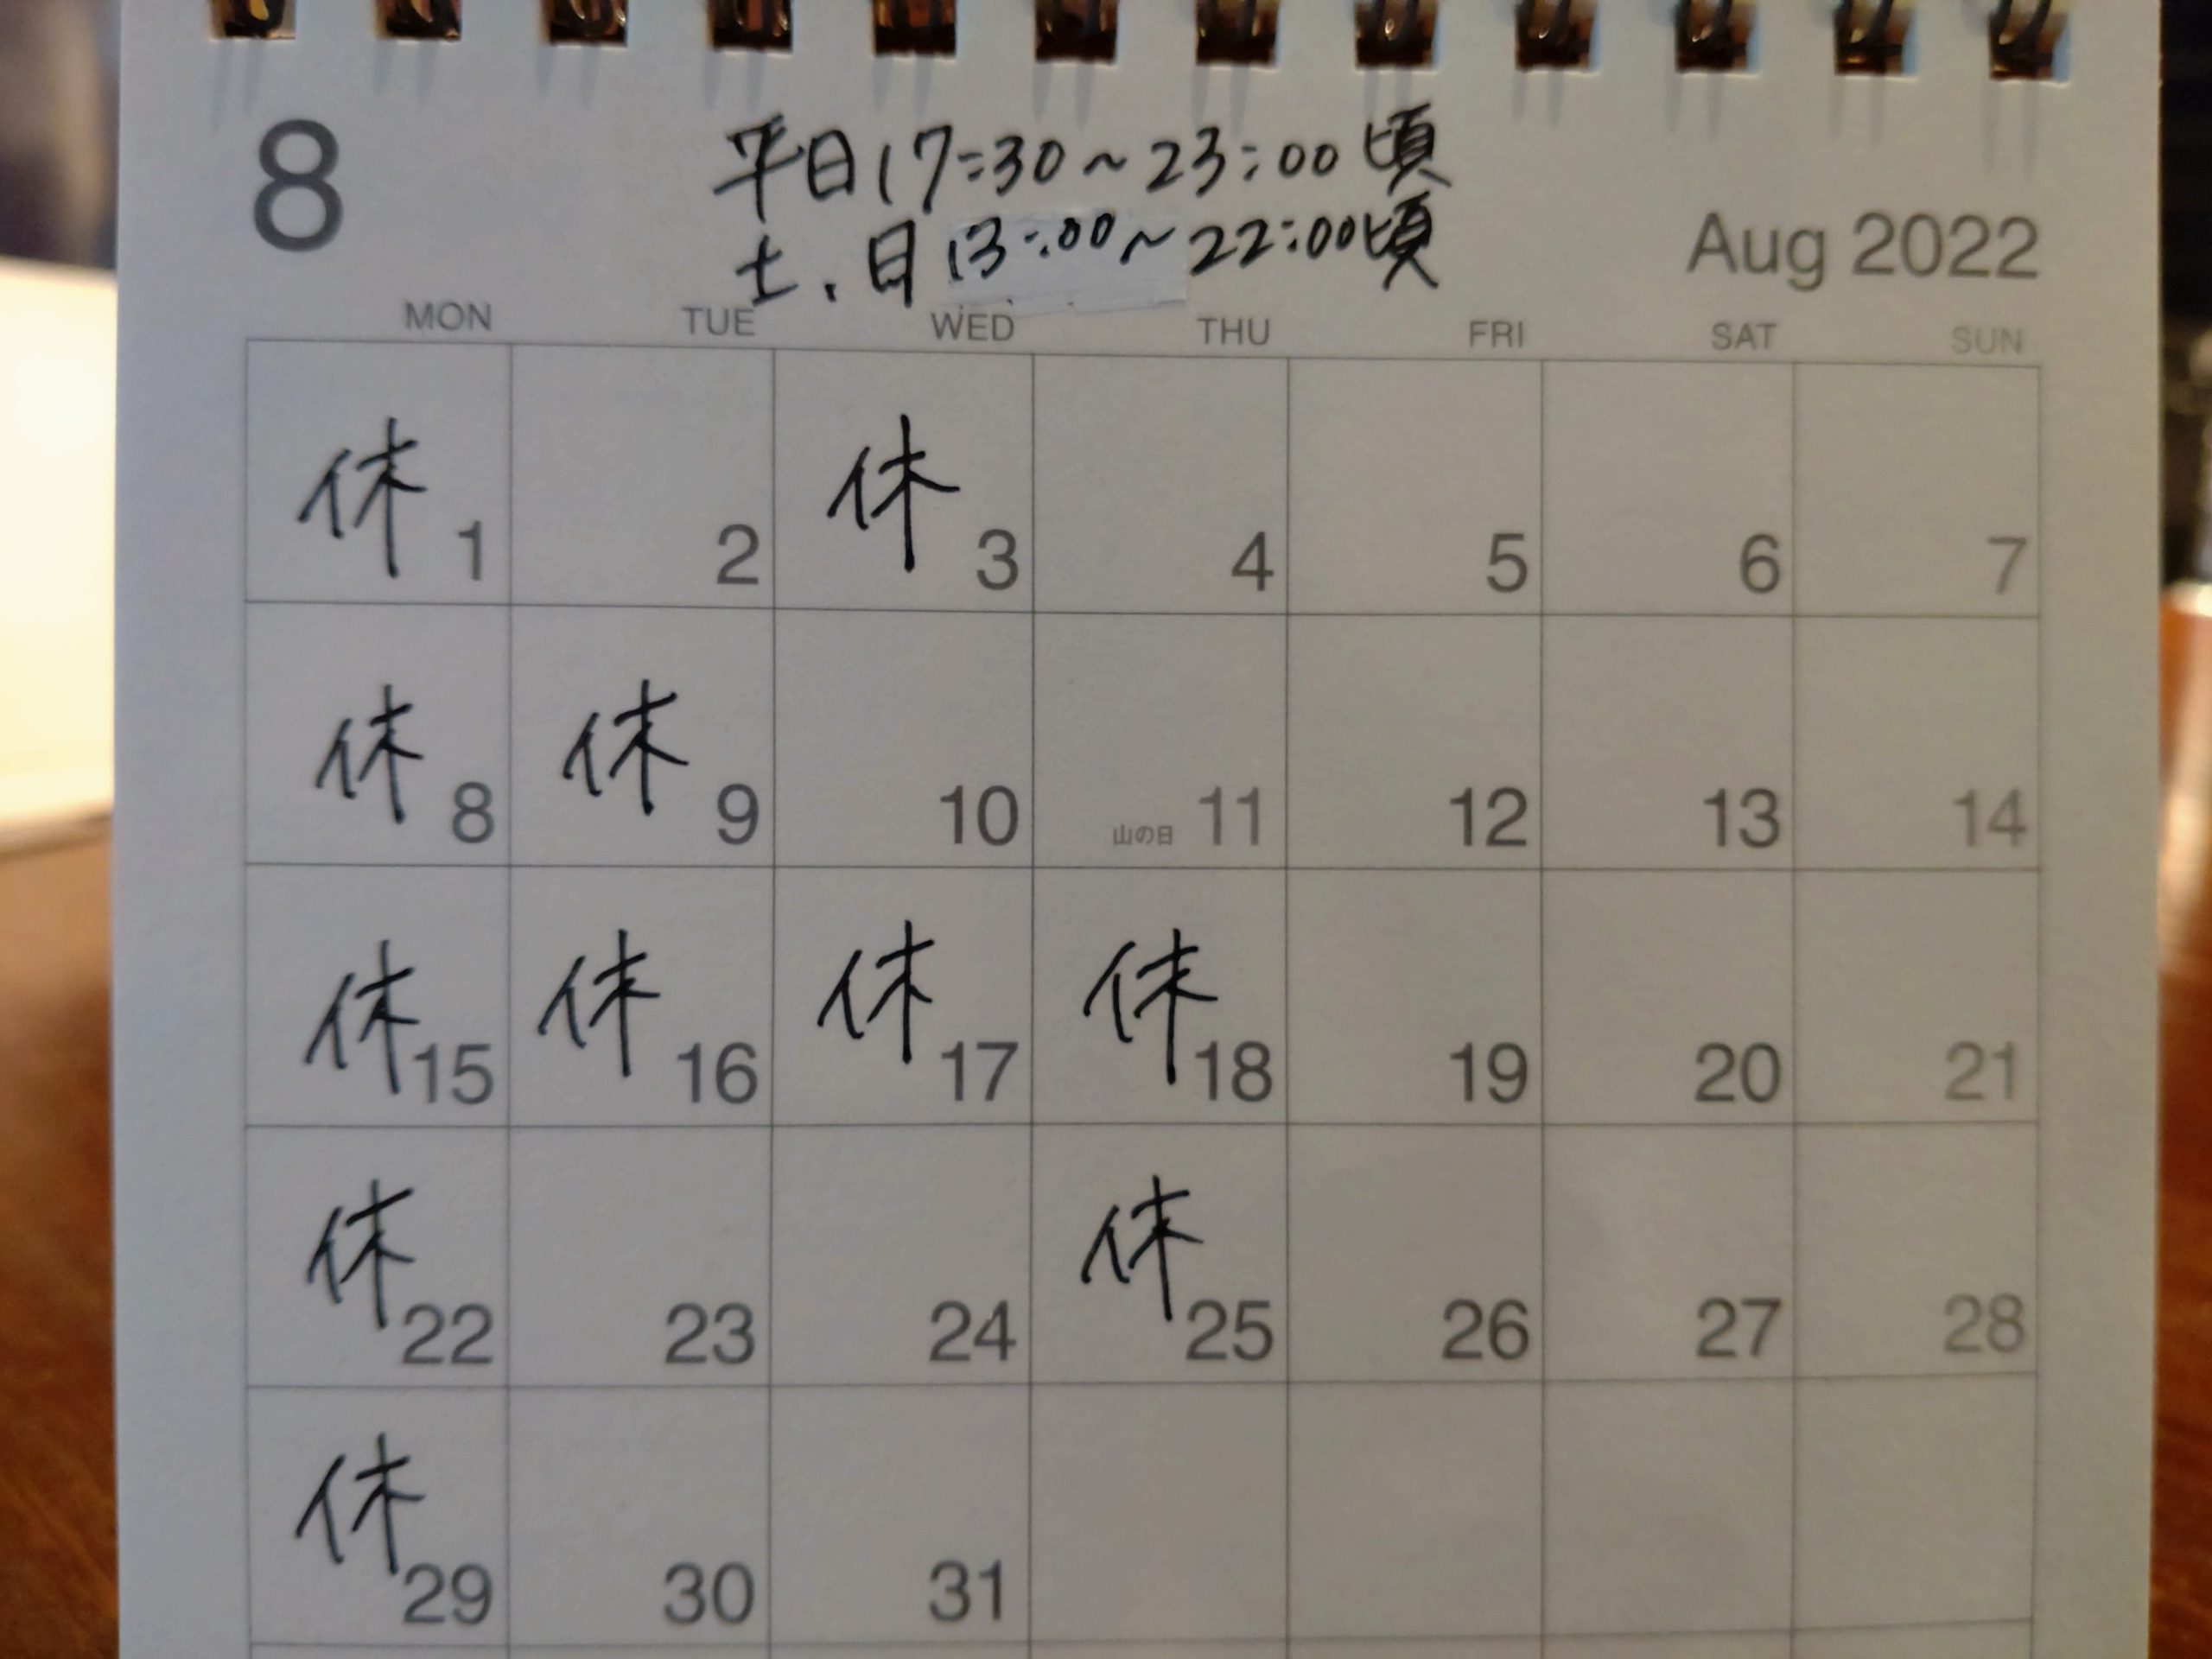 8
平日17:30〜23:00頃
土、日13:00〜22:00頃
Aug 2022
MON TUE WED THU FRI SAT SUN
休 1 2 休 3 4 5 6 7
休 8 休 9 10 山の日 11 12 13 14
休 15 休 16 休 17 休 18 19 20 21
休 22 23 24 休 25 26 27 28
休 29 30 31